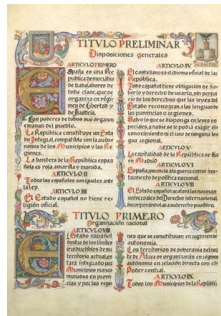 TITVLO PRELIMINAR
Disposiciones generales
ARTICVLO I
España es una Re
pública democrática
de trabajadores de
toda clase, que se
organiza en régi
men de Libertad y
de Justicia.
Los poderes de todos sus órganos
emanan del pueblo.
La República constituye un Estado
integral, compatible con la autono
mía de los Municipios y las Re
giones.
La bandera de la República espa
ñola es roja, amarilla y morada.
ARTICVLO II
Todos los españoles son iguales ante
la ley.
ARTICVLO III
El Estado español no tiene re
ligión oficial.
ARTICVLO IV
El castellano es el idioma oficial de la
República.
Todo español tiene obligación de sa
berlo y derecho de usarlo, sin perjui
cio de los derechos que las leyes del
Estado reconozcan a las lenguas de
las provincias o regiones.
Salvo lo que se disponga en leyes es
peciales, a nadie se le podrá exigir el
conocimiento ni el uso de ninguna len
gua regional.
ARTICVLO V
La capitalidad de la República se fija
en Madrid.
ARTICVLO VI
España renuncia a la guerra como ins
trumento de política nacional.
ARTICVLO VII
El Estado español acatará las normas
universales del Derecho internacional,
incorporándolas a su derecho positivo.
TITVLO PRIMERO
Organización nacional
ARTICVLO VIII
El Estado español,
dentro de los límites
irreductibles de su
territorio actual, es
tará integrado por
Municipios manco
munados en provin
cias y por las regio
nes que se constituyan en régimen de
autonomía.
Los territorios de soberanía del nor
te de África se organizarán en régimen
autónomo en relación directa con el
Poder central.
ARTICVLO IX
Todos los Municipios de la Repúbli